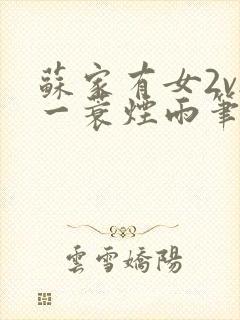 蘇家有女2v
一蓑煙雨筆
雲雪嬌陽